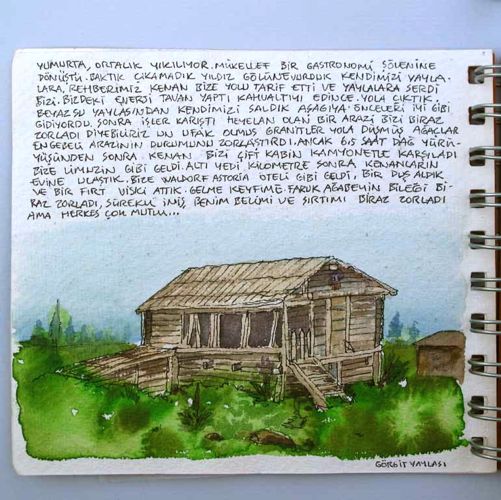 YUMURTA, ORTALIK YIKILIYOR. MÜKELLEF BİR GASTRONOMİ ŞÖLENİNE
DÖNÜŞTÜ. BAKTIK ÇIKAMADIK YILDIZ GÖLÜNE VURDUK KENDİMİZİ YAYLA.
LARA. REHBERİMİZ KENAN BİZE YOLU TARİF ETTİ VE YAYLALARA SERDİ
BİZİ. BİZDEKİ ENERJİ TAVAN YAPTI KAHVALTIYI EDİNCE. YOLA ÇIKTIK.
BEYAZSU YAYLASINDAN KENDİMİZİ SALDIK AŞAĞIYA. ÖNCELERİ İYİ GİBİ
GİDİYORDU. SONRA İŞLER KARIŞTI HEYELAN OLAN BİR ARAZİ BİZİ BİRAZ
ZORLADI DİYEBİLİRİZ UN UFAK OLMUŞ GRANİTLER YOLA DÜŞMÜŞ AĞAÇLAR
ENGEBELİ ARAZİNİN DURUMUNU ZORLAŞTIRDI. ANCAK 6,5 SAAT DAĞ YÜRÜ-
YÜŞÜNDEN SONRA. KENAN BİZİ ÇİFT KABİN KAMYONETLE KARŞILADI
BİZE LİMUZİN GİBİ GELDİ. ALTI YEDİ KİLOMETRE SONRA. KENANLARIN
EVİNE ULAŞTIK. BİZE WALDORF ASTORIA OTELİ GİBİ GELDİ, BİR DUŞ ALDIK
VE BİR FIRT VİSKİ ATTIK. GELME KEYFİME. FARUK AĞABEYİN BİLEĞİ Bİ-
RAZ ZORLADI, SÜREKLİ İNİŞ BENİM BELİMİ VE SIRTIMI BİRAZ ZORLADI
AMA HERKES ÇOK MUTLU...
GÖRGİT YAYLASI